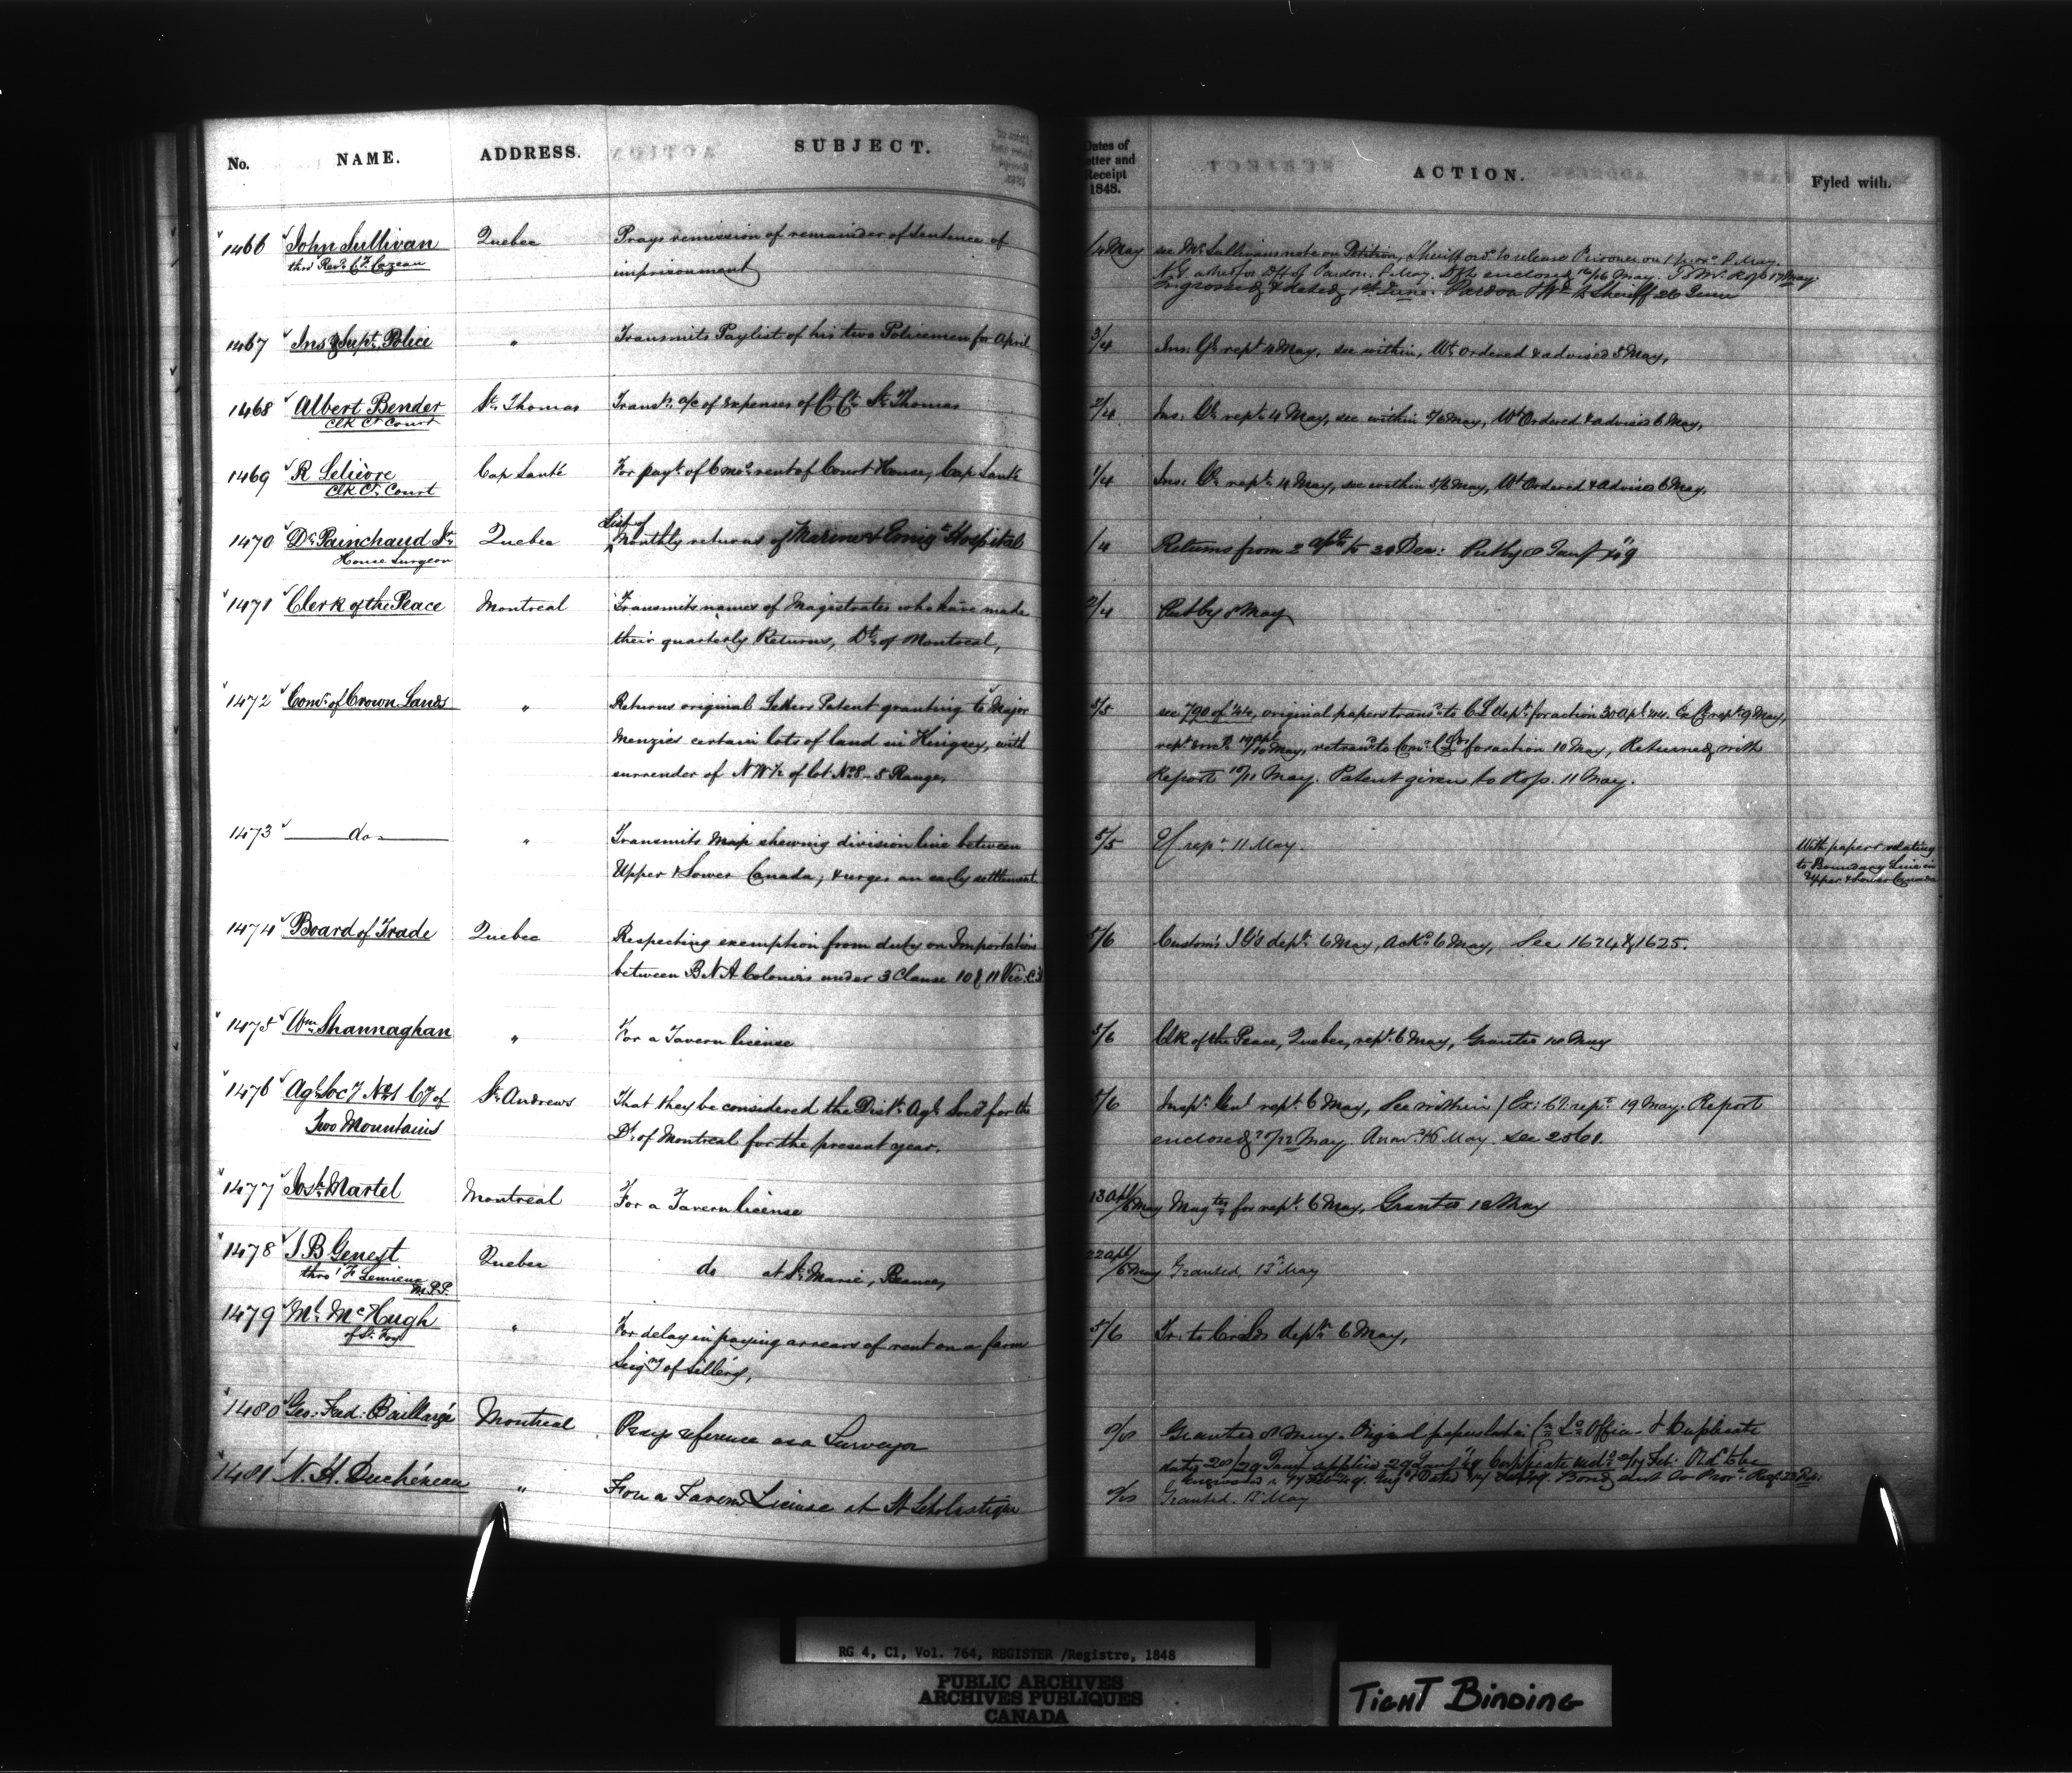 No. NAME. ADDRESS. SUBJECT.
1466 John Sullivan Quebec Prays remission of remainder of Sentence of
thro' Revd. C. F. Cazeau imprisonment
1467 Ins & Supt. Police " Transmits Paylist of his two Policemen for April
1468 Albert Bender St. Thomas Transts. a/c of expenses of Ct. Ct. St. Thomas
Clk Ct Court
1469 R Lelièvre Cap Santé For payt. of 6 mos. rent of Court House, Cap Santé
Clk Ct. Court
List of
1470 Dr. Painchaud Jr. Quebec Monthly returns of Marine & Emigt. Hospital
House Surgeon
1471 Clerk of the Peace Montreal Transmits names of Magistrates who have made
their quarterly Returns, Dt. of Montreal,
1472 Comr. of Crown Lands " Returns original Letters Patent granting to Major
Menzies certain lots of land in Kingsey, with
surrender of NW ½ of lot No. 8 - 5 Range,
1473 do " Transmits Map shewing division line between
Upper & Lower Canada, & urges an early settlement
1474 Board of Trade Quebec Respecting exemption from duty on Importations
between B N A Colonies under 3 Clause 10 & 11 Vic. C.
1475 Wm. Shannaghan " For a Tavern license
1476 Agl. Socy. No. 1 Cy of St. Andrews That they be considered the Distt. Agl. Socy. for the
Two Mountains Dt. of Montreal for the present year.
1477 Josh. Martel Montreal For a Tavern license
1478 J B Genest Quebec do at St. Marie, Beauce,
thro' F Lemieux
M.P.P.
1479 Ml. McHugh " For delay in paying arrears of rent on a farm
of St. Foy Seigny of Sillery,
1480 Geo: Fred: Baillargé Montreal Prays reference as a Surveyor
1481 N. H. Duchéneau " For a Tavern License at St Scholastique
Dates of
Letter and
Receipt
1848.
ACTION. Fyled with.
/4 May see Mr. Sullivans note on Petition, Sheriff ord. to release Prisoner on May.
A.G. asked for Dft of Pardon. 8 May. Dft enclosed 16/16 May. To Mr. 17 May.
Engrossed & dated 1st. June. Pardon to Sheriff 26 June
3/4 Ins: Gl. rept 4 May, see within, Wt. ordered & advised 5 May,
2/4 Ins: Gl. rept. 4 May, see within 5/6 May, Wt Ordered & advised 6 May,
1/4 Ins: Gl. rept. 4 May, see within 5/6 May, Wt Ordered & advised 6 May,
1/4 Returns from 2 Dec: Put by 8 Jany '49
2/4 Put by 8 May
5/5 see 790 of '44, original papers trans. to C L dept. for action 30 Apl '44. Ex. C. rept. 9 May,
10 May, retrand. to Comr. C Lds for action 10 May, Returned with
Report 10/11 May. Patent given to 11 May.
5/5 rept. 11 May. With papers relating
to Boundary Line in
Upper & Lower Canada
5/6 Customs I G's dept. 6 May, Ackd. 6 May, See 1624 & 1625.
5/6 Clk of the Peace, Quebec, rept. 6 May, Granted 10 May
5/6 Inspr. Genl rept. 6 May, See within / Ex: Cl: rept. 19 May. Report
enclosed 22 May. May. see 2561.
13 Apl/6 May Magtes. for rept. 6 May, Granted 12 May
22 Apl/6 May Granted, 12 May
5/6 Tr: to Cr: Lds dept. 6 May,
Granted 8 May. Original papers lost in Office & Duplicate
Granted. 12 May
RG 4, C1, Vol. 764, REGISTER /Registre, 1848
PUBLIC ARCHIVES
ARCHIVES PUBLIQUES
CANADA
TIGHT BINDING